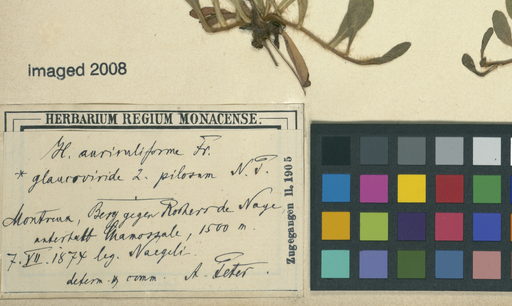 imaged 2008
HERBARIUM REGIUM MONACENSE.
H. auriculiforme Fr.
* glaucoviride 2. pilosum N. P.
Montreux, Berg gegen Rochers de Naye
unterhalb 1500 m.
7. VII. 1874 leg. Naegeli.
determ. & comm. A. Peter.
Zugegangen II, 1905